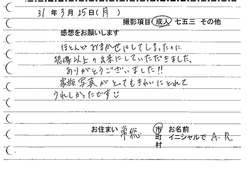 31年3月25日(月)
撮影項目 成人 七五三 その他
感想をお願いします
ほとんどおまかせにしてしまったのに
想像以上の出来にしていただきました。
ありがとうございました!!
家族写真がとてもきれいにとれて
うれしかったです☺
お住まい 常総 市町村 お名前 イニシャルで A.R